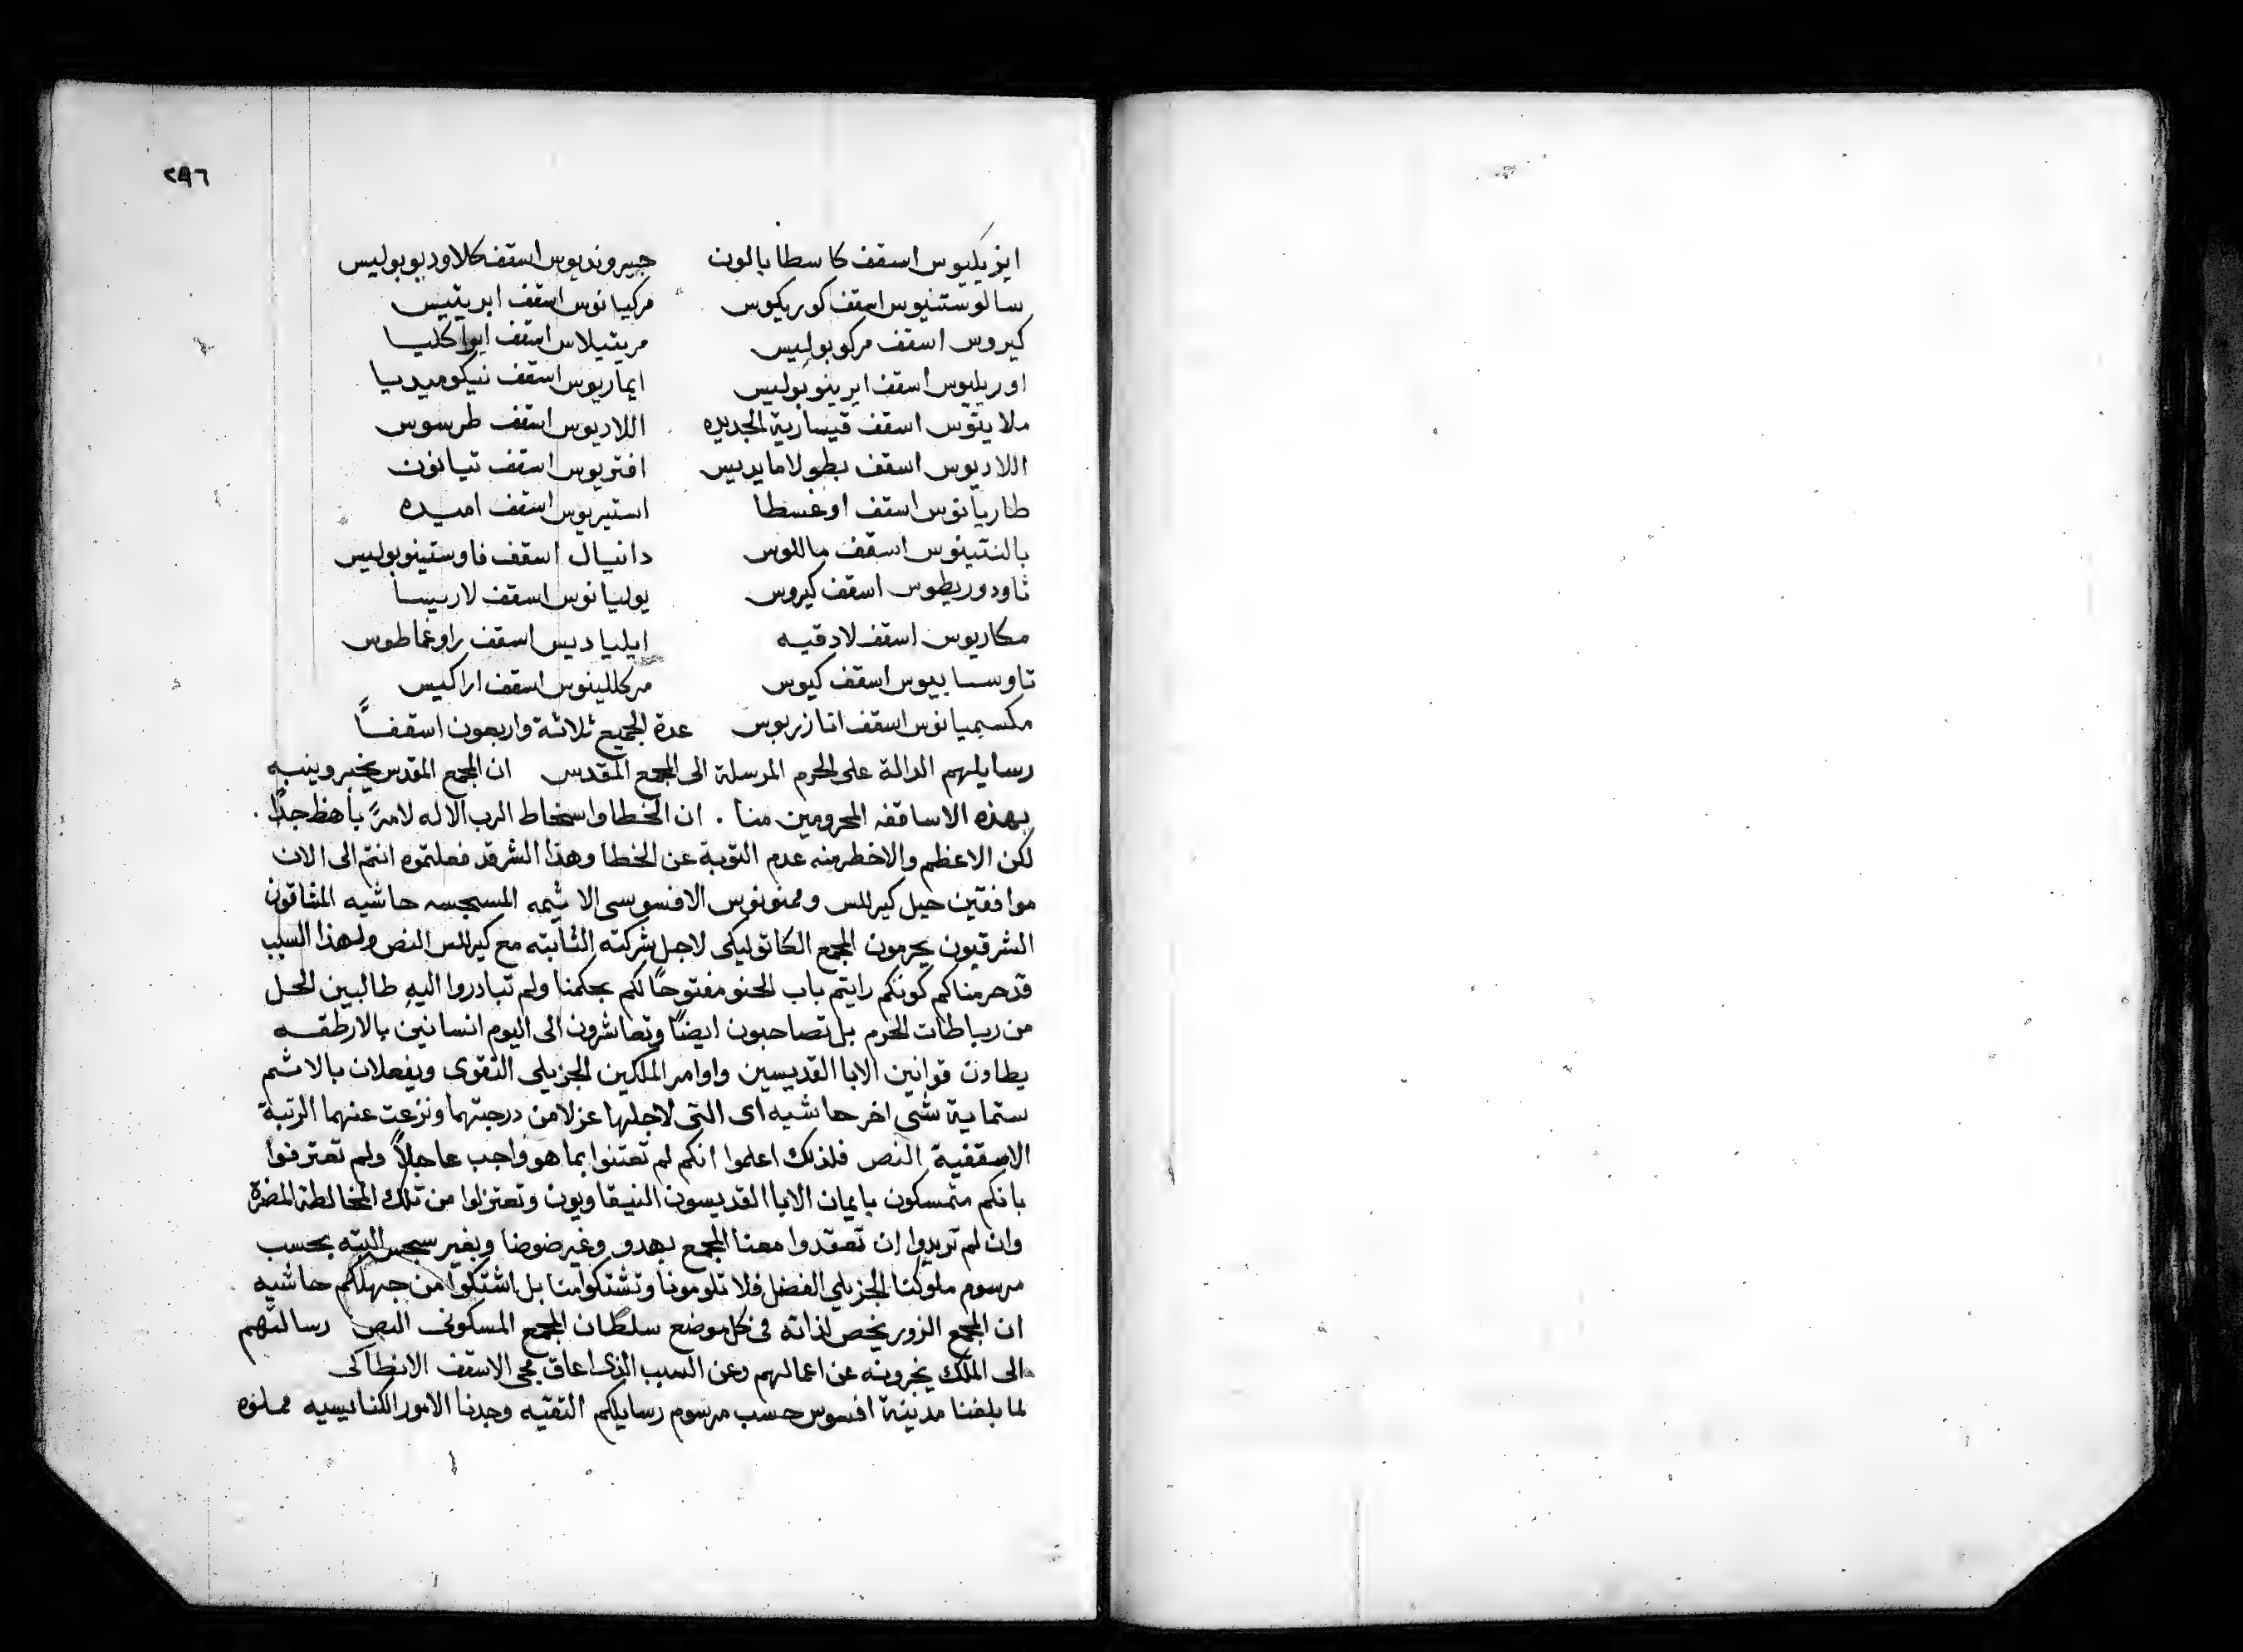 ٢٩٦
ايزيكيوس اسقف كاسطابالون جيرونديوس اسقف كلاوديوبوليس
سالوستنيوس اسقف كوريكيوس مركيانوس اسقف ابريتيس
كيروس اسقف مركوبوليس مريتيلاس اسقف ايراكليا
اوريليوس اسقف ايرينوبوليس ايماريوس اسقف نيكوميديا
ملايتوس اسقف قيسارية الجديده اللاديوس اسقف طرسوس
اللاديوس اسقف بطولامايديس افتريوس اسقف تيانون
طاريانوس اسقف اوغسطا استيريوس اسقف اميده
بالنتينوس اسقف ماللوس دانيال اسقف فاوستينوبوليس
ثاودوريطوس اسقف كيروس يوليانوس اسقف لاريسا
مكاريوس اسقف لادقيه ايلياديس اسقف زاوغماطوس
تاوسابيوس اسقف كيوس مركللينوس اسقف اراكيس
مكسيميانوس اسقف انازربوس عدة الجميع ثلاثة واربعون اسقفاً
رسايلهم الدالة على الحرم المرسلة الى المجمع المقدس ان المجمع المقدس يخبر وينبه
بهذه الاساقفه المحرومين منا . ان الخطا واسخاط الرب الاله لامرً باهظ جداً .
لكن الاعظم والاخطر منه عدم التوبة عن الخطا وهذا الشر قد فعلتموه انتم الى الان
موافقين حيل كيرللس وممنونوس الافسوسى الاثيمه المسجسه حاشيه المشاقون
الشرقيون يحرمون المجمع الكاتوليكى لاجل شركته الثابته مع كيرللس النص ولهذا السبب
قد حرمناكم كونكم رايتم باب الحنو مفتوحاً لكم بحكمنا ولم تبادروا اليه طالبين الحل
من رباطات الحرم بل تصاحبون ايضاً وتعاشرون الى اليوم انسانين بالارطقه
يطاون قوانين الابا القديسين واوامر الملكين الجزيلى التقوى ويفعلان بالاثم
ستماية شي اخر حاشيه اى التى لاجلها عزلا من درجتهما ونزعت عنهما الرتبة
الاسقفية النص فلذلك اعلموا انكم لم تعتنوا بما هو واجب عاجلاً ولم تعترفوا
بانكم متمسكون بايمان الابا القديسون النيقاويون وتعتزلوا من تلك المخالطة المضرة
وان لم تريدوا ان تعقدوا معنا المجمع بهدو وغير ضوضا وبغير سجس البته بحسب
مرسوم ملوكنا الجزيلي الفضل فلا تلومونا وتشتكوا منا بل اشتكوا من جهلكم حاشيه
ان المجمع الزور يخص لذاته فى كل موضع سلطان المجمع المسكونى النص رسالتهم
الى الملك يخبرونه عن اعمالهم وعن السبب الذى اعاق مجى الاسقف الانطاكى
لما بلغنا مدينة افسوس حسب مرسوم رسايلكم التقيه وجدنا الامور الكنايسيه مملوه